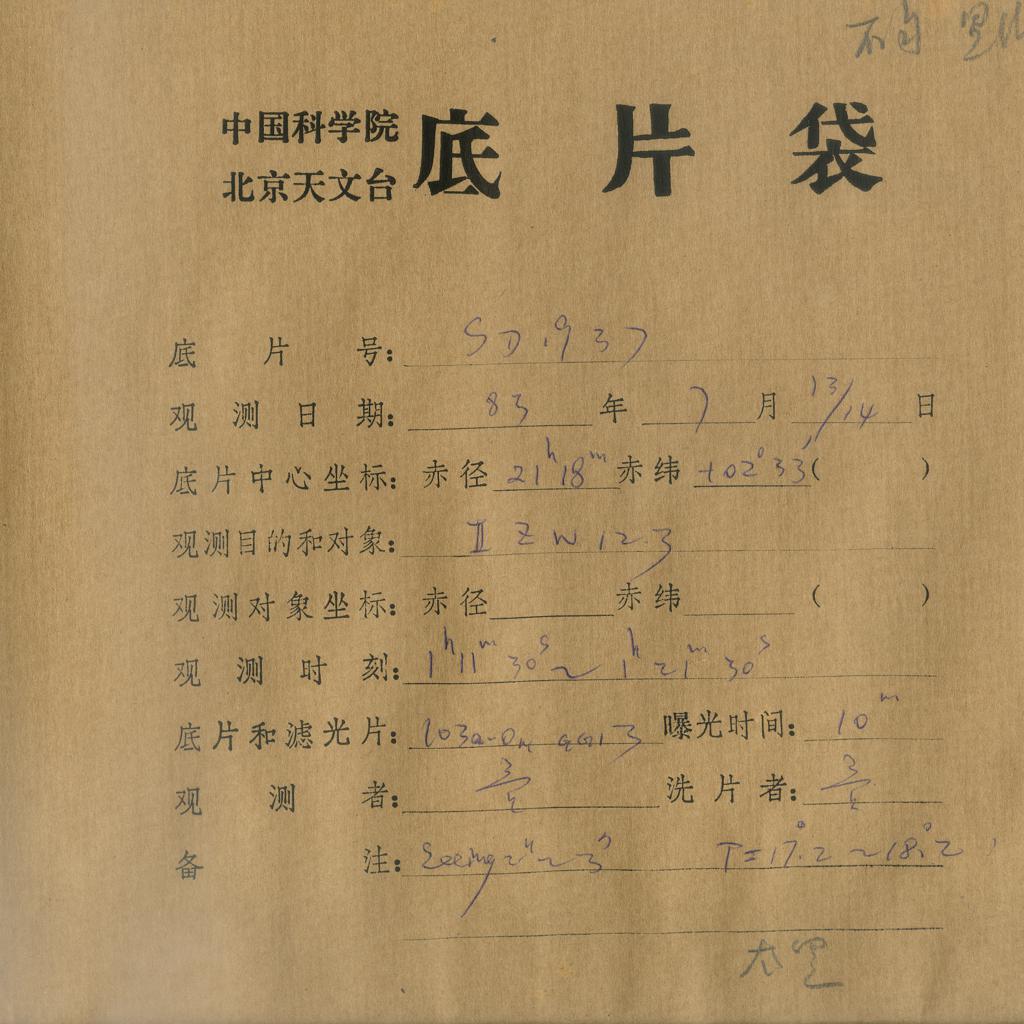 中国科学院
北京天文台
底片袋
底片号: SD1937
观测日期: 83年7月13/14日
底片中心坐标: 赤径21h18m赤纬+02°33′( )
观测目的和对象: II ZW 123
观测对象坐标: 赤径 赤纬 ( )
观测时刻: 1h11m30s~1h21m30s
底片和滤光片: 103a-O 曝光时间: 10m
观测者: 洗片者:
备注: Seeing 2″~3″ T=17°.2~18°.2